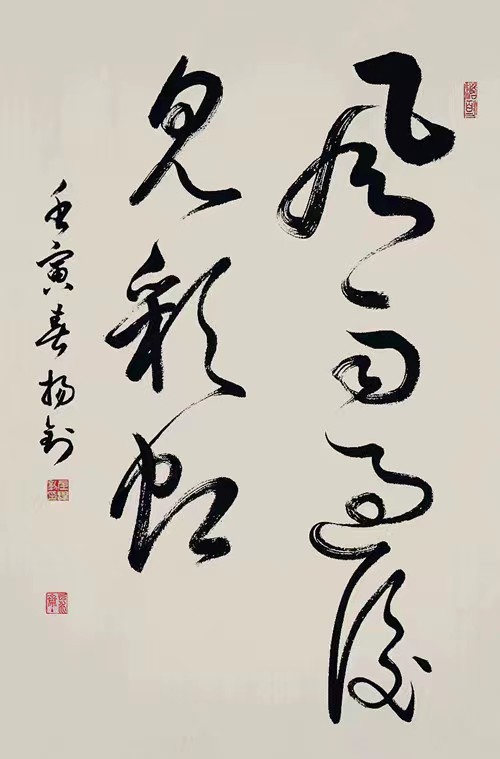 風雨過後
見彩虹
壬寅春